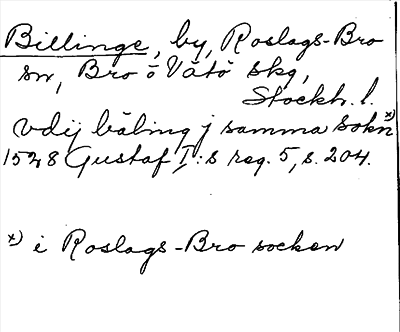 Billinge, by, Roslags-Bro
sn, Bro o Vätö skg,
Stockh. l.
vdij bäling j samma Sokn x)
1528 Gustaf I:s reg. 5, s. 204.
x) i Roslags-Bro socken